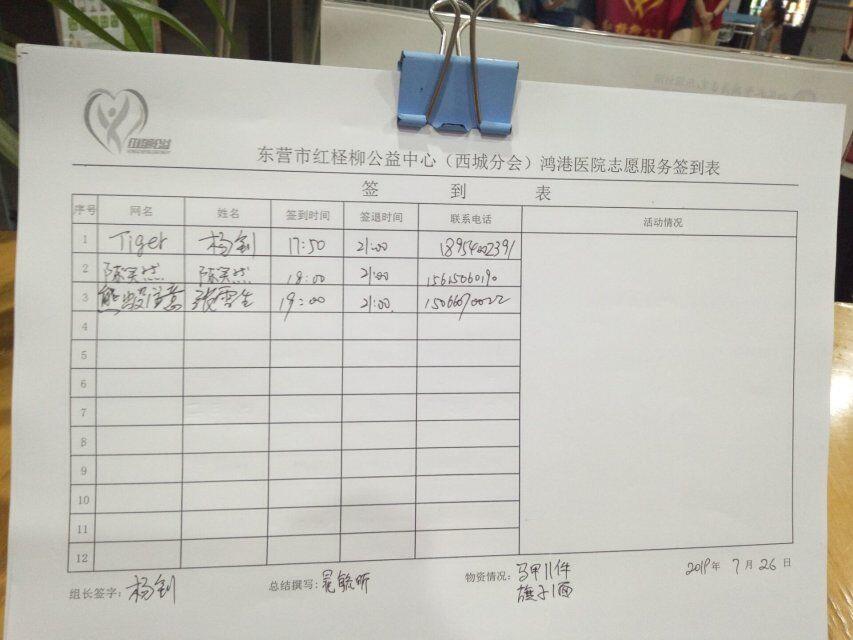 东营市红柽柳公益中心（西城分会）鸿港医院志愿服务签到表
签 到 表
序号 网名 姓名 签到时间 签退时间 联系电话 活动情况
1 Tiger 杨钊 17:50 21:00 18954002391
2 陈笑然 陈笑然 18:00 21:00 15615060190
3 熊出没注意 张雪生 19:00 21:00 15066070022
4
5
6
7
8
9
10
11
12
组长签字：杨钊 总结撰写：晁毓昕 物资情况：马甲11件 2019年 7月26日
旗子1面